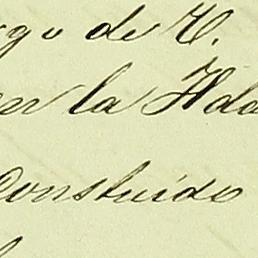 go de R.
en la Hda
Construido